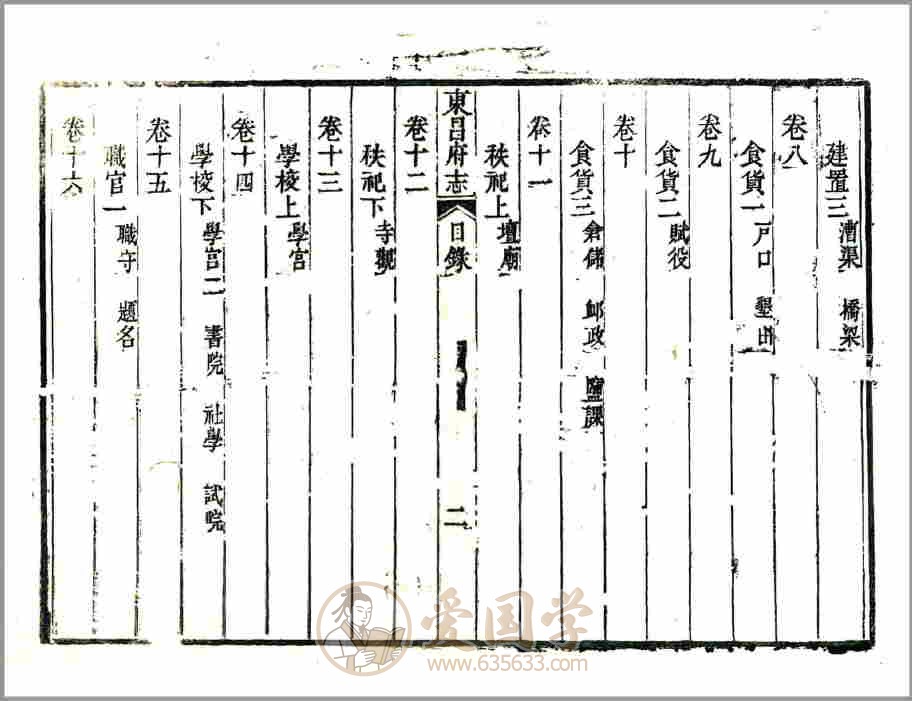 建置三 漕渠 橋梁
卷八
食貨一 戸口 墾田
卷九
食貨二 賦役
卷十
食貨三 倉儲 郵政 鹽課
卷十一
秩祀上 壇廟
卷十二
東昌府志 目錄 二
秩祀下 寺觀
卷十三
學校上 學宮
卷十四
學校下 學宮二 書院 社學 試院
卷十五
職官一 職守 題名
卷十六
爱国学
www.635633.com